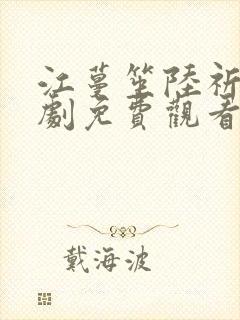 江蔓笙陸祈
劇免費觀看
戴海波